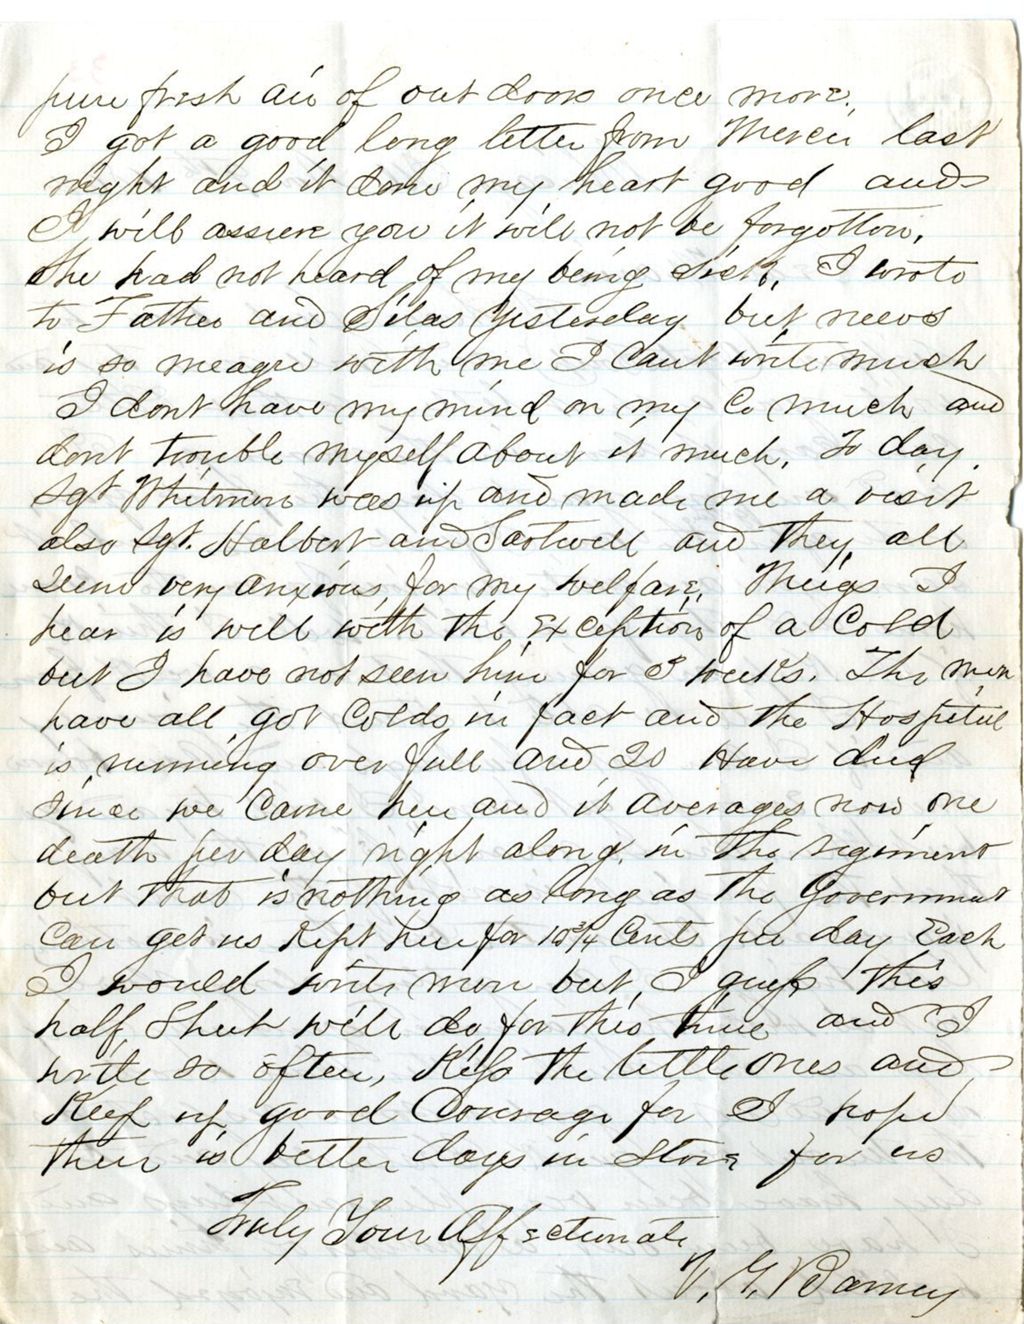 pure fresh air of out doors once more.
I got a good long letter from Mercia last
night and it done my heart good and
I will assure you it will not be forgotton.
She had not heard of my being sick. I wrote
to Father and Silas yesterday but news
is so meagre with me I Cant write much
I dont have my mind on my Co much and
dont trouble myself about it much. To day
Sgt Whitmore was up and made me a visit
also Sgt. Halbert and Sartwell and they all
seem very anxious for my welfare. I
hear is well with the Exception of a Cold
but I have not seen him for 3 weeks. The men
have all got Colds in fact and the Hospital
is running over full and 20 Have died
since we Came here and it averages now one
death per day right along in the regiment
but that is nothing as long as the Government
Can get us Kept here for 10¾ Cents per day Each
I would write more but I guess this
half Sheet will do for this time and I
write so often, Kiss the little ones and
Keep up good Courage for I hope
their is better days in Store for us
Truly Your Affectionate
V. G. Barney